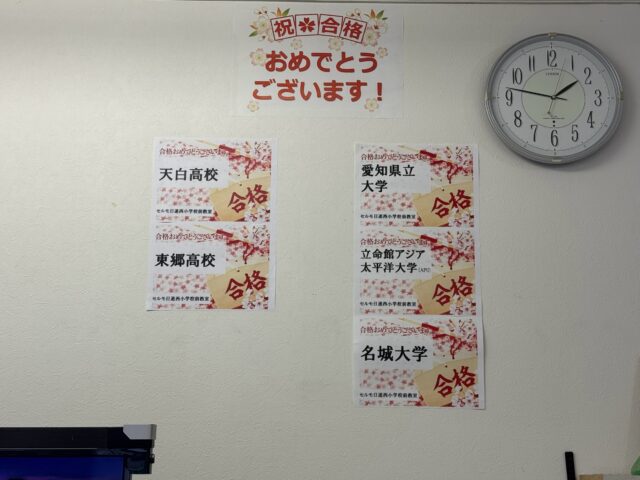 祝合格
おめでとう
ございます！
合格おめでとうございます
天白高校
合格
セルモ日進西小学校前教室
合格おめでとうございます
東郷高校
合格
セルモ日進西小学校前教室
合格おめでとうございます
愛知県立
大学
合格
セルモ日進西小学校前教室
合格おめでとうございます
立命館アジア
太平洋大学(APU)
合格
セルモ日進西小学校前教室
合格おめでとうございます
名城大学
合格
セルモ日進西小学校前教室
12
1
2
3
4
5
6
7
8
9
10
11
CITIZEN